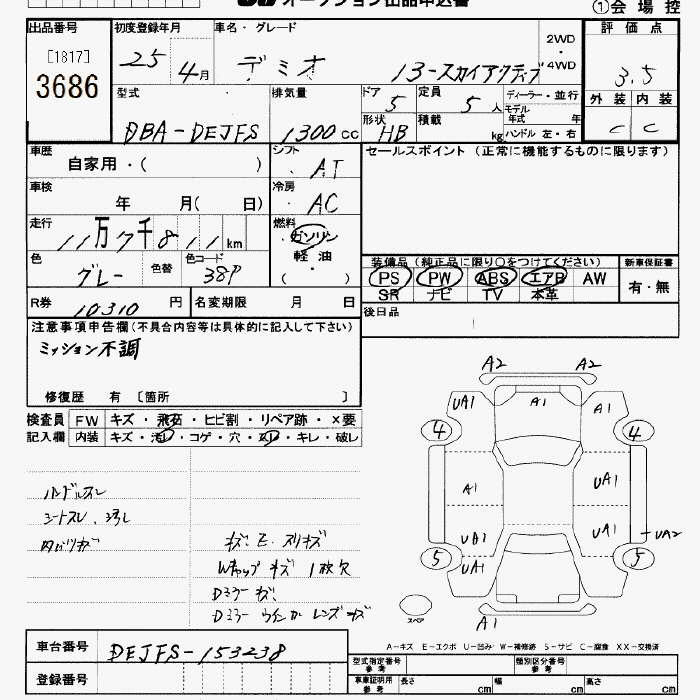 オークション出品申込書
①会場控
出品番号 初度登録年月 車名・グレード 2WD・4WD 評価点
[1817]
3686
25 4月 デミオ 13-スカイアクティブ 3.5
型式 排気量 ドア 定員 ディーラー・並行 外装 内装
5 5人 モデル年式 年
DBA-DEJFS 1300cc 形状 HB 積載 kg ハンドル 左・右 C C
車歴 シフト セールスポイント(正常に機能するものに限ります)
自家用・( ) AT
車検 冷房
年 月( 日) AC
走行 燃料
11万7千811km ガソリン
軽油
色 色替 色コード ・
グレー 38P ( )
装備品(純正品に限り○をつけてください) 新車保証書
PS PW ABS エアB AW 有・無
SR ナビ TV 本革
R券 10310円 名変期限 月 日
後日品
注意事項申告欄(不具合内容等は具体的に記入して下さい)
ミッション不調
修復歴 有 [箇所 ]
検査員 FW キズ・飛石・ヒビ割・リペア跡・×要
記入欄 内装 キズ・汚れ・コゲ・穴・スレ・キレ・破レ
A2 A2
UA1 A1 A1
4 4
A1 UA1
UA1 UA1 UA2
5 5
UA1
A1
スペア
ハンドルスレ
シートスレ、汚レ
キズ E スリキズ
Wキャップ キズ 1枚欠
Dミラー キズ
Dミラー ウインカー レンズ キズ
A-キズ E-エクボ U-凹み W-補修跡 S-サビ C-腐食 XX-交換済
車台番号 DEJFS-153238
型式指定番号 参考 種別区分番号 参考
登録番号
車庫証明用 参考 長さ cm 幅 cm 高さ cm